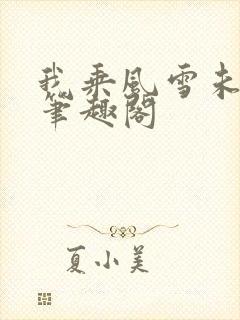 我乘风雪未
笔趣阁
夏小美